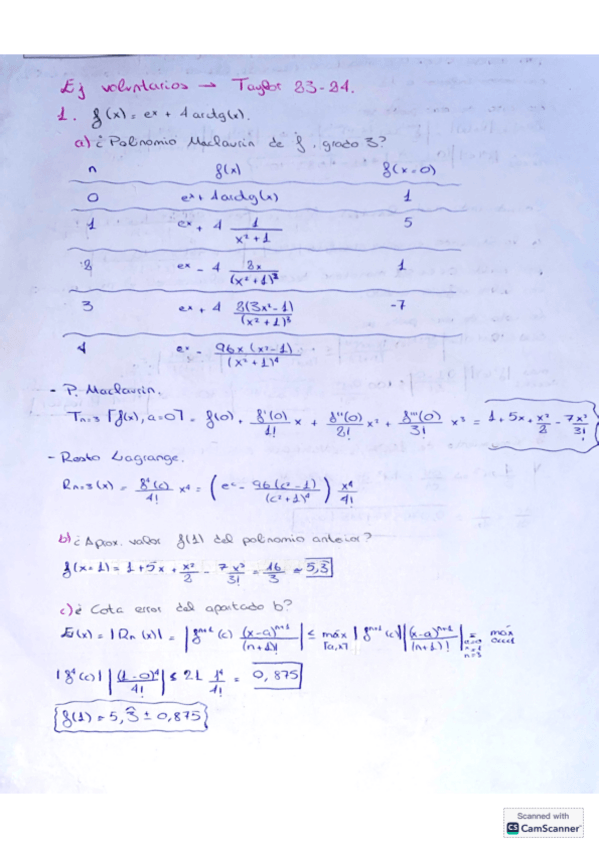 Ej voluntarios → Taylor 23-24.
1. f(x) = eˣ + 4 arctg(x).
a) ¿Polinomio Maclaurin de f, grado 3?
n f(x) f(x=0)
0 eˣ + 4arctg(x) 1
1 eˣ + 4 1/(x²+1) 5
2 eˣ - 4 2x/(x²+1)² 1
3 eˣ + 4 2(3x²-1)/(x²+1)³ -7
4 eˣ - 96x(x²-1)/(x²+1)⁴
- P. Maclaurin.
Tn=3 [f(x), a=0] = f(0) + f'(0)/1! x + f''(0)/2! x² + f'''(0)/3! x³ = 1 + 5x + x²/2 - 7x³/3!
- Resto Lagrange.
Rn=3(x) = f⁴(c)/4! x⁴ = (eᶜ - 96(c²-1)/(c²+1)⁴) x⁴/4!
b) ¿Aprox. valor f(1) del polinomio anterior?
f(x=1) = 1 + 5x + x²/2 - 7x³/3! = 16/3 = 5,3
c) ¿Cota error del apartado b?
E(x) = |Rn(x)| = |fⁿ⁺¹(c) (x-a)ⁿ⁺¹/(n+1)!| ≤ máx [a,x] |fⁿ⁺¹(c)| |(x-a)ⁿ⁺¹/(n+1)!| = máx
|f⁴(c)| |(1-0)⁴/4!| ≤ 21 1⁴/4! = 0,875
f(1) = 5,3 ± 0,875
Scanned with
CS CamScanner